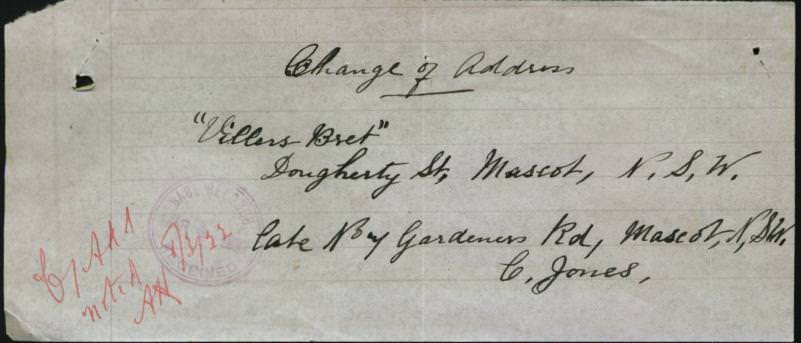 Change of Address
"Villers Bret"
Dougherty St, Mascot, N.S.W.
late No 4 Gardeners Rd, Mascot, N,S.W.
C. Jones,
C/Add
noted
AH
8/3/22